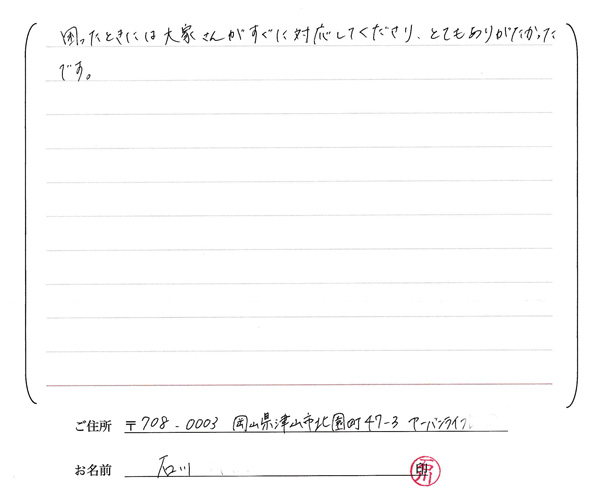 困ったときには大家さんがすぐに対応してくださり、とてもありがたかった
です。
ご住所 〒708-0003 岡山県津山市北園町47-3 アーバンライフ
お名前 石川 印